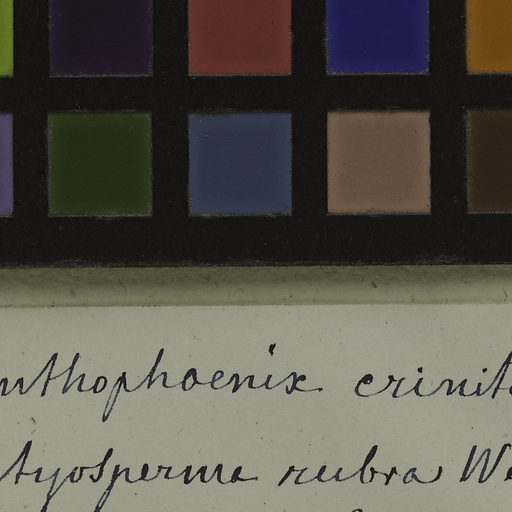 nthophoenix crinit
tyosperma rubra We